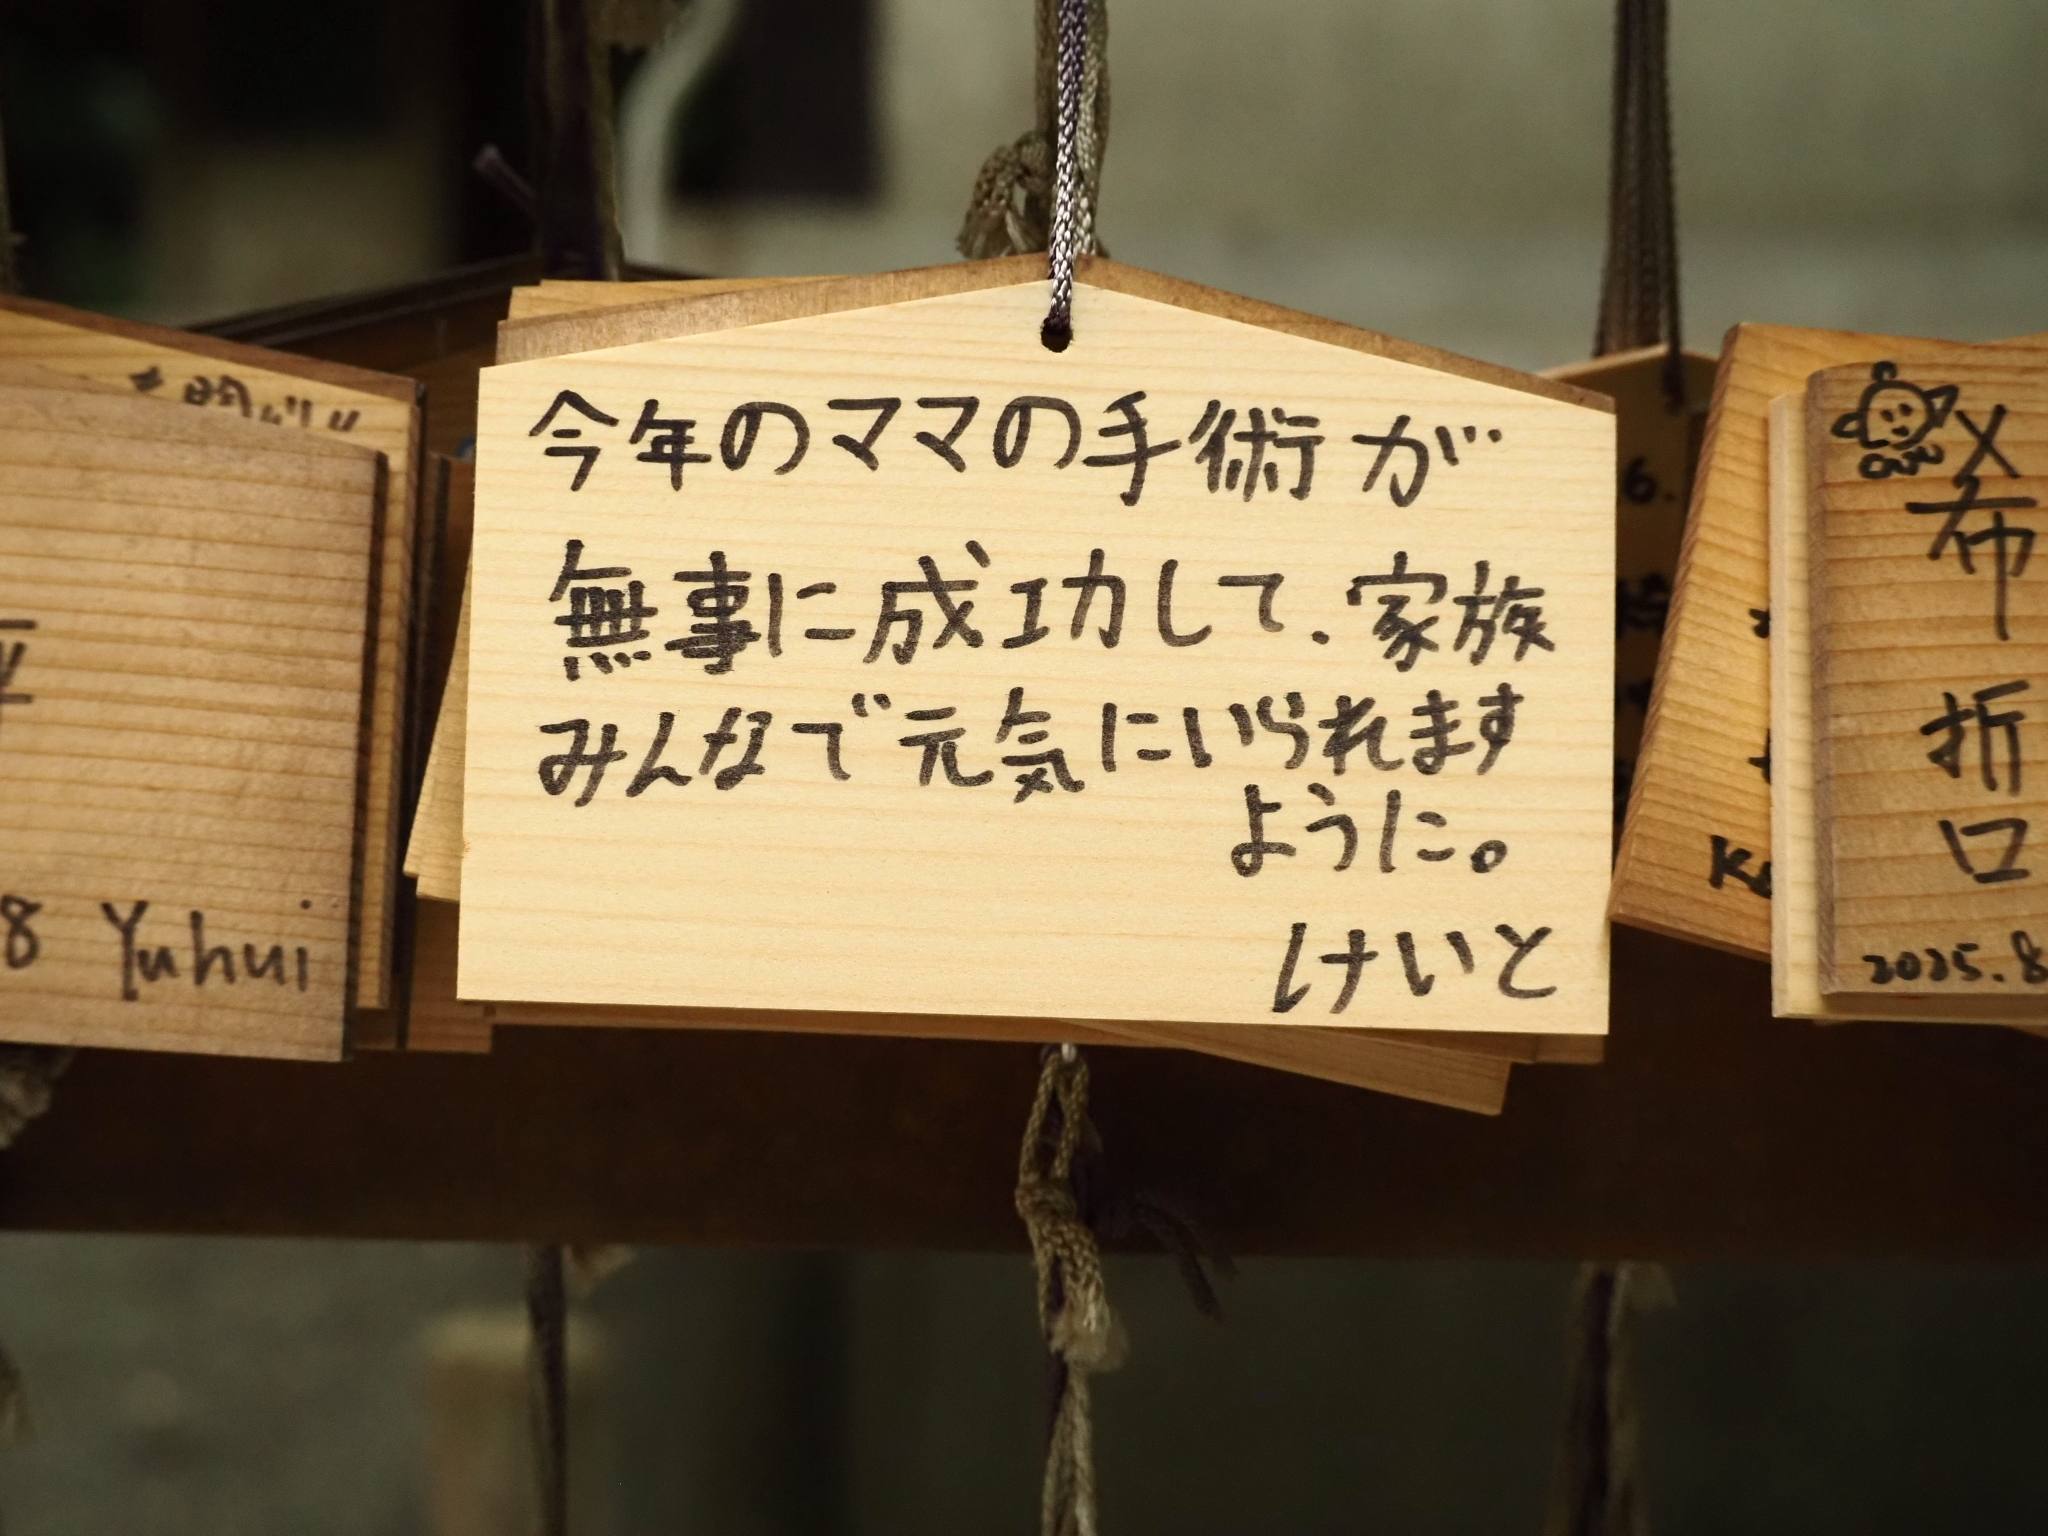 今年のママの手術が
無事に成功して、家族
みんなで元気にいられます
ように。
けいと
8 Yuhui
希
折
口
2025.8
6.